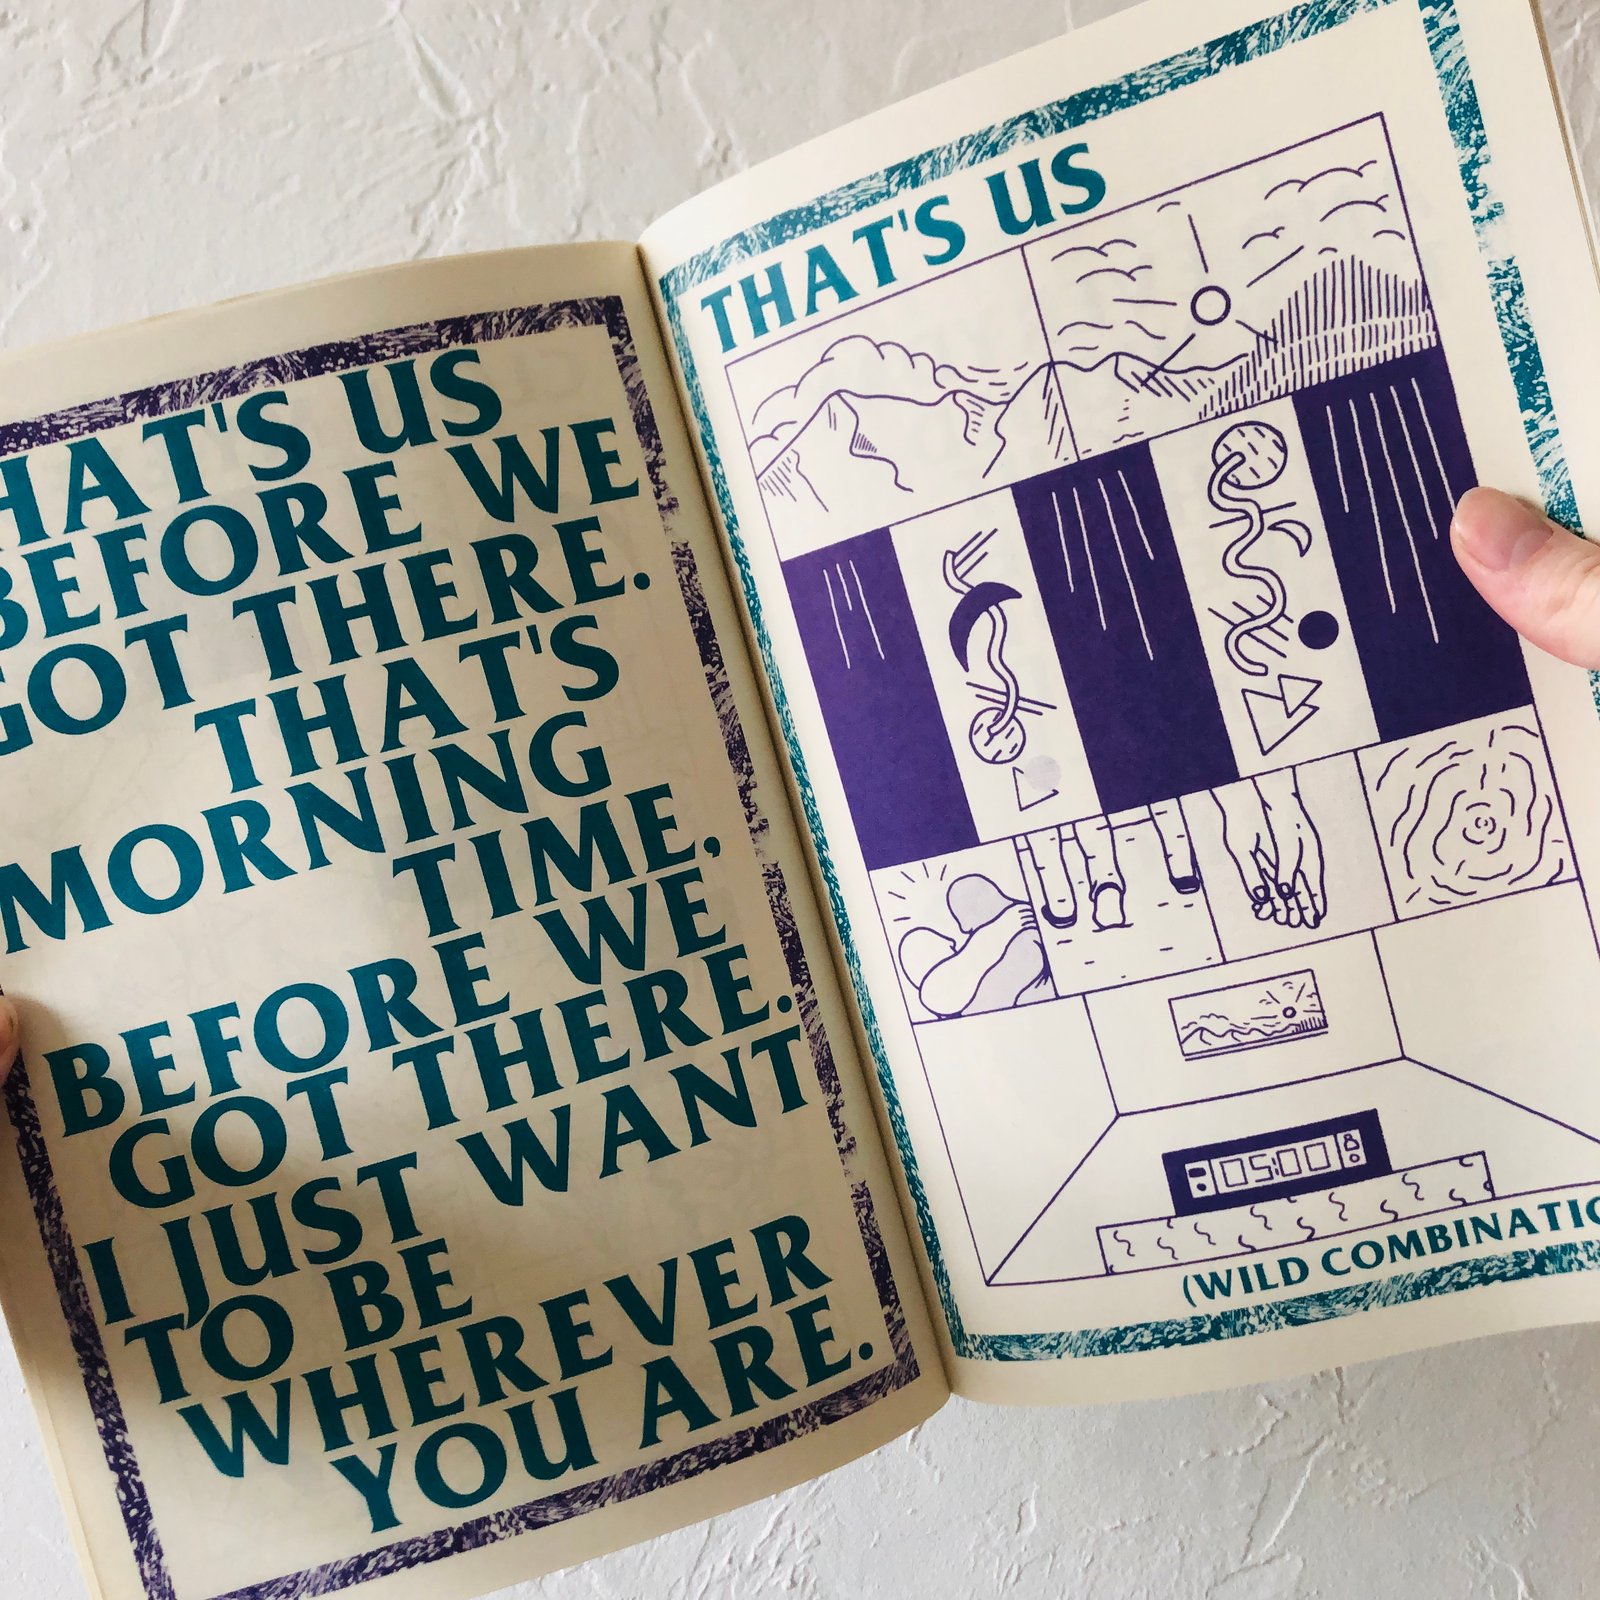 HAT'S US
BEFORE WE
GOT THERE.
THAT'S
MORNING
TIME.
BEFORE WE
GOT THERE.
I JUST WANT
TO BE
WHEREVER
YOU ARE.
THAT'S US
05:00
(WILD COMBINATIO